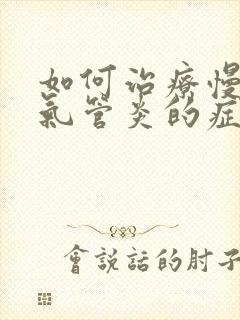 如何治療慢
氣管炎的症
會說話的肘子